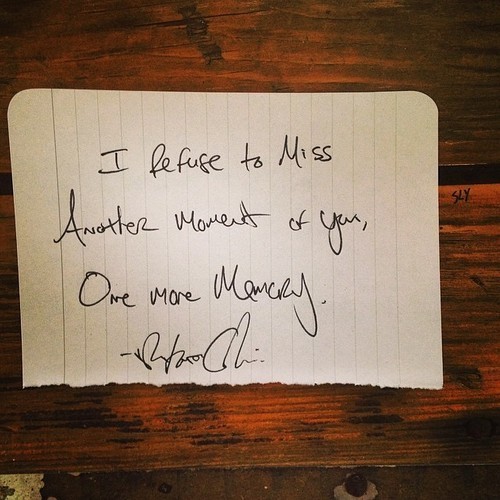 I Refuse to Miss
Another Moment of you,
One more Memory.
SLY